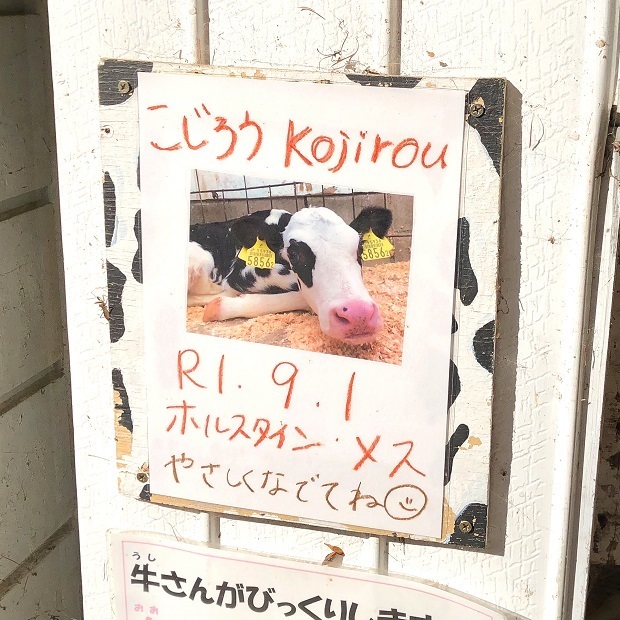 こじろう Kojirou
5856
5856
R1.9.1
ホルスタイン・メス
やさしくなでてね
うし
牛さんがびっくりします